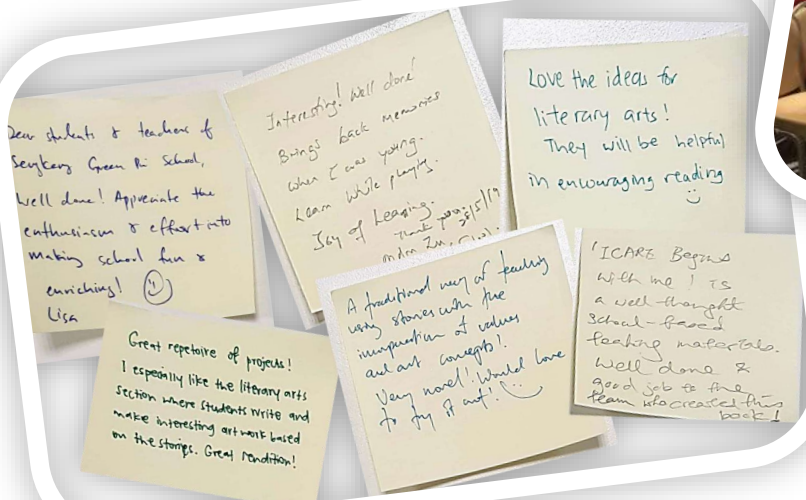 Dear students & teachers of
Sengkang Green Pri School,
Well done! Appreciate the
enthusiasm & effort into
making school fun &
enriching!
Lisa
Interesting! Well done!
Brings back memories
when I was young.
Learn while playing.
Joy of Learning.
Thank you
Love the ideas for
literary arts!
They will be helpful
in encouraging reading
Great repetoire of projects!
I especially like the literary arts
section where students write and
make interesting artwork based
on the stories. Great rendition!
A traditional way of teaching
using stories with the
incorporation of values
and art concepts!
Very novel! Would love
to try it out!
'ICARE Begins
with me! is
a well-thought
school-based
teaching materials.
Well done &
good job to the
team who created this
book!